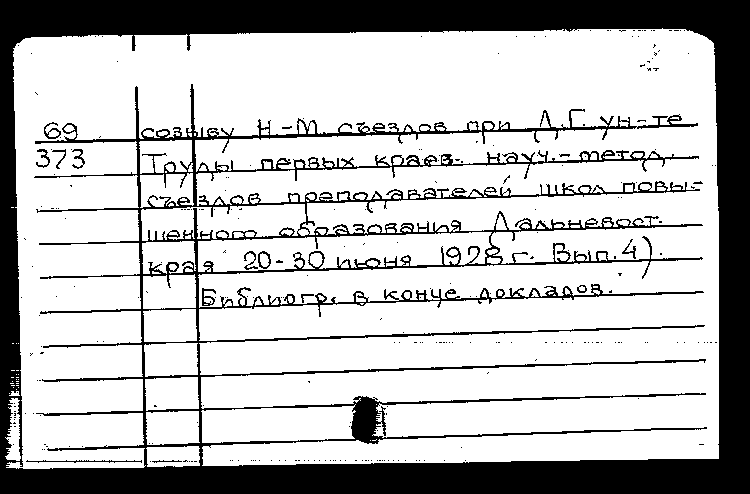 69 созыву Н.-М. съездов при Д.Г. ун-те
373 Труды первых краев. науч.-метод.
съездов преподавателей школ повы-
шенного образования Дальневост.
края 20-30 июня 1928 г. Вып. 4).
Библиогр. в конце докладов.